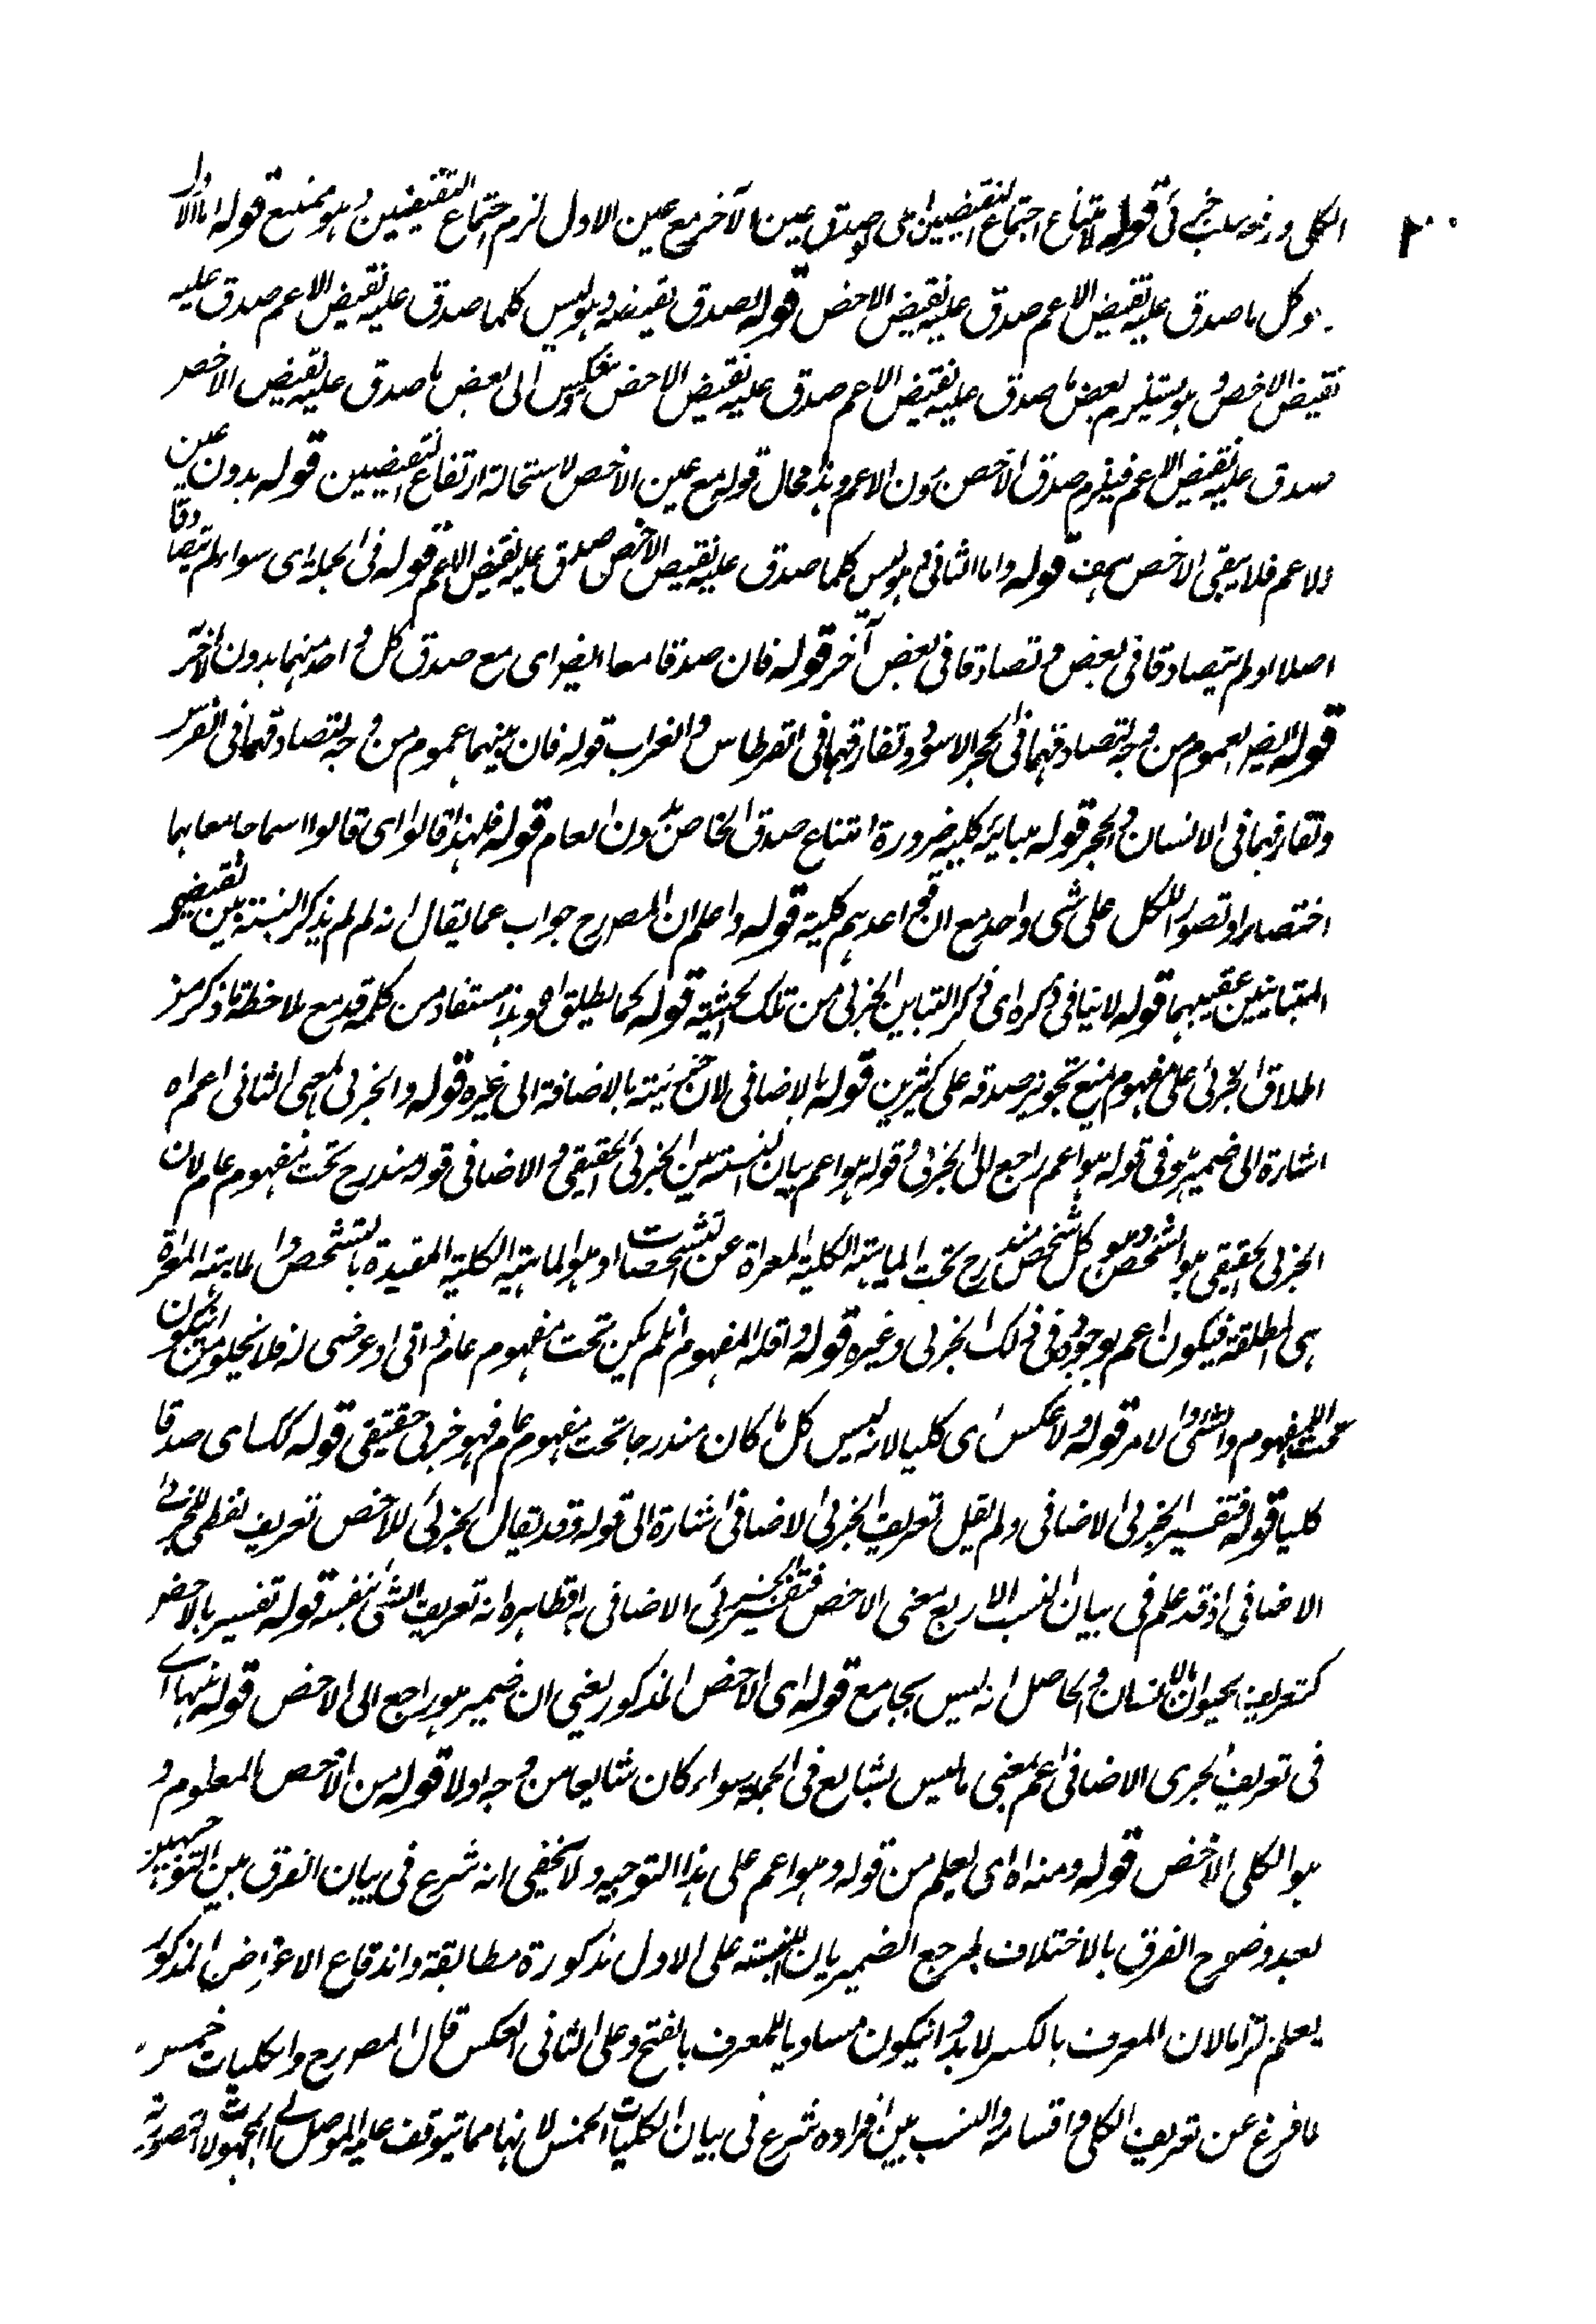 ٢٠
الكلى ورفعه سلب جزئى قوله لامتناع اجتماع النقيضين اى لو صدق عين الآخر مع عين الاول لزم اجتماع النقيضين وهو ممتنع قوله اما الاول
وكل ما صدق عليه نقيض الاعم صدق عليه نقيض الاخص قوله لصدق نقيضه وهو ليس كلما صدق عليه نقيض الاعم صدق عليه
نقيض الاخص وهو يستلزم بعض ما صدق عليه نقيض الاعم صدق عليه نقيض الاخص الى بعض ما صدق عليه نقيض الاخص
صدق عليه نقيض الاعم فيلزم صدق الاخص بدون الاعم وهذا محال قوله مع عين الاخص لاستحالة ارتفاع النقيضين قوله بدون عين
الاعم فلا يبقى الاخص اخص هف قوله واما الثانى وهو ليس كلما صدق عليه نقيض الاخص صدق عليه نقيض الاعم قوله فى الجملة اى سواء لم يتصادقا
اصلا او لم يتصادقا فى بعض وتصادقا فى بعض آخر قوله فان صدقا معا ايضا اى مع صدق كل واحد منهما بدون الآخر
قوله ايضا لعموم من وجه لتصادقهما فى الحجر الاسود وتفارقهما فى القرطاس والغراب قوله فان بينهما عموم من وجه لتصادقهما فى الفرس
وتفارقهما فى الانسان والحجر قوله مباينة كلية ضرورة امتناع صدق الخاص بدون العام قوله فلهذا قالوا اى قالوا اسما جامعا بهما
اختصارا وتصورا للكل على شى واحد مع ان فى احدهم كلية قوله واعلم ان المصرح جواب عما يقال انه لم لم يذكر النسبة بين نقيضى
المتباينين عقيبهما قوله لا ينافى ذكره اى ذكر التباين الجزئى من تلك الحيثية قوله كما يطلق اه وهذا مستفاد من كلمة قد مع ملاحظة ما ذكر من
اطلاق الجزئى على مفهوم منع تجويز صدقه على كثيرين قوله بالاضافى لان جزئيته بالاضافة الى غيره قوله والجزئى بالمعنى الثانى اعم اه
اشارة الى ضمير هو فى قوله هو اعم راجع الى الجزئى وقوله هو اعم بيان النسبة بين الجزئى الحقيقى والاضافى قوله مندرج تحت مفهوم عام لان
الجزئى الحقيقى هو الشخص وهو كل شخص مندرج تحت الماهية الكلية المعراة عن التشخصات اذ هو الماهية الكلية المقيدة بالتشخص والماهية المعراة
هى المطلقة فيكون اعم لوجوده فى ذلك الجزئى وغيره قوله واقله المفهوم ان لم يكن تحت مفهوم عام ذاتى او عرضى له فلا يخلو من ان يكون
تحت المفهوم والشئ والامر قوله ولا عكس اى كليا لانه ليس كل ما كان مندرجا تحت مفهوم عام فهو جزئى حقيقى قوله كليا اى صدقا
كليا قوله فتفسير الجزئى الاضافى ولم يقل تعريف الجزئى الاضافى اشارة الى قوله وقد يقال الجزئى للاخص تعريف لفظى للجزئى
الاضافى اذ قد علم فى بيان النسب الاربع معنى الاخص فتفسير الجزئى الاضافى به فظاهره انه تعريف الشئ بنفسه قوله تفسير بالاخص
كتعريف الحيوان بالانسان والحاصل انه ليس بجامع قوله اى الاخص المذكور يعنى ان ضمير هو راجع الى الاخص قوله منها اى
فى تعريف الجزئى الاضافى اعم بمعنى ما ليس بشايع فى الجملة سواء كان شايعا من وجه اولا قوله من الاخص المعلوم و
هو الكلى الاخص قوله ومنه اه اى يعلم من قوله وهو اعم على هذا التوجيه ولا يخفى انه شرع فى بيان الفرق بين التوجيهين
بعد وضوح الفرق بالاختلاف لمرجع الضمير بان النسبة على الاول مذكورة مطابقة واندفاع الاعتراض المذكور
يعلم التزاما لان المعرف بالكسر لا بد ان يكون مساويا للمعرف بالفتح وعلى الثانى العكس قال المصرح والكليات خمس
لما فرغ عن تعريف الكلى واقسامه والنسب بين افراده شرع فى بيان الكليات الخمس لانها مما يتوقف عليه الموصل الى المجهولات التصورية